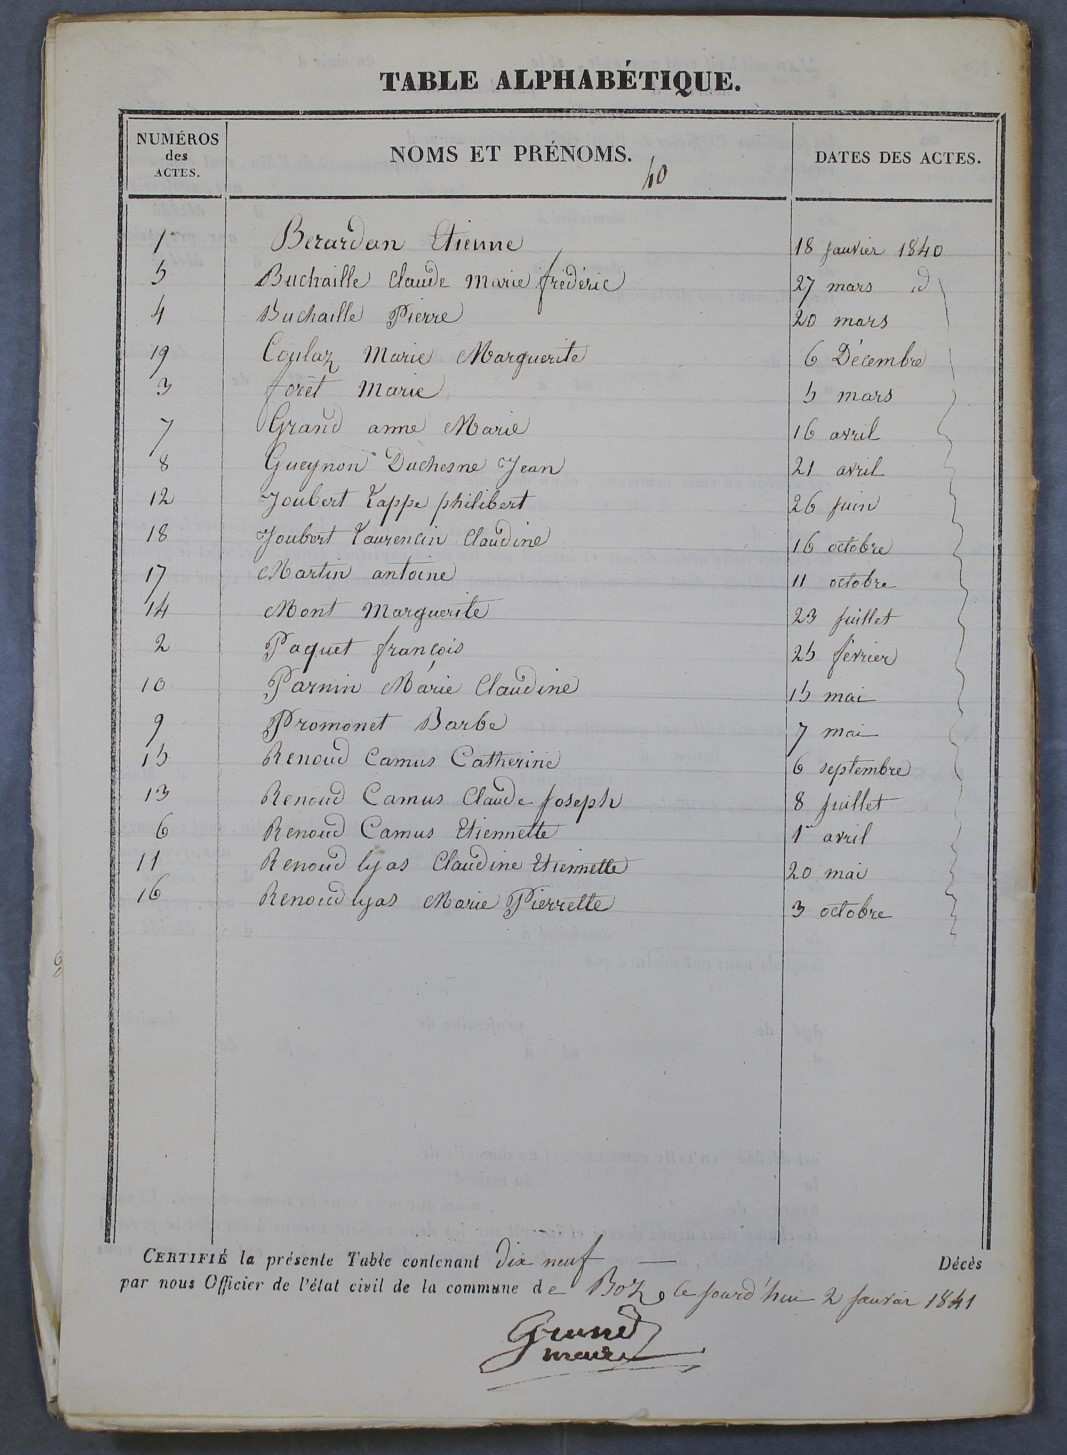 TABLE ALPHABÉTIQUE.
NUMÉROS des ACTES. NOMS ET PRÉNOMS. DATES DES ACTES.
40
1 Berardan Etienne 18 janvier 1840
5 Buchaille Claude Marie frédéric 27 mars d
4 Buchaille Pierre 20 mars
19 Coulaz Marie Marguerite 6 Décembre
3 forêt Marie 5 mars
7 Grand anne Marie 16 avril
8 Gueynon Duchesne Jean 21 avril
12 Joubert Lappe philibert 26 juin
18 Joubert Laurencin Claudine 16 octobre
17 Martin antoine 11 octobre
14 Mont Marguerite 23 juillet
2 Paquet françois 25 février
10 Parnin Marie Claudine 15 mai
9 Promonet Barbe 7 mai
15 Renoud Camus Catherine 6 septembre
13 Renoud Camus Claude Joseph 8 juillet
6 Renoud Camus Etiennette 1er avril
11 Renoud lyas Claudine Etiennette 20 mai
16 Renoud lyas Marie Pierrette 3 octobre
CERTIFIÉ la présente Table contenant dix neuf Décès
par nous Officier de l'état civil de la commune de Boz, ce jourd'hui 2 janvier 1841
Grand
maire